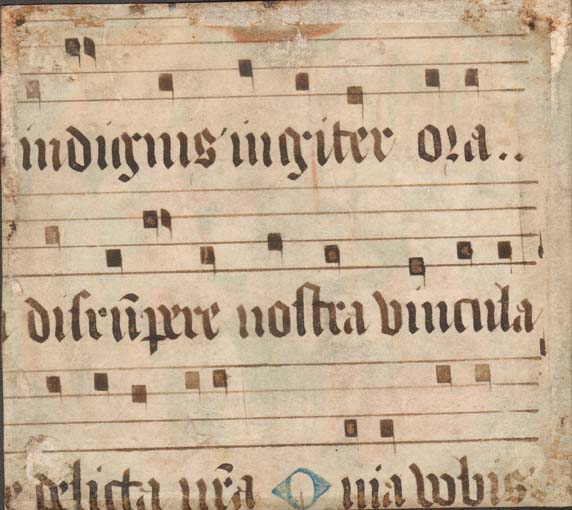 indignis iugiter ora..
disrūpere nostra vincula
delicta nr̄a Onia vobis.